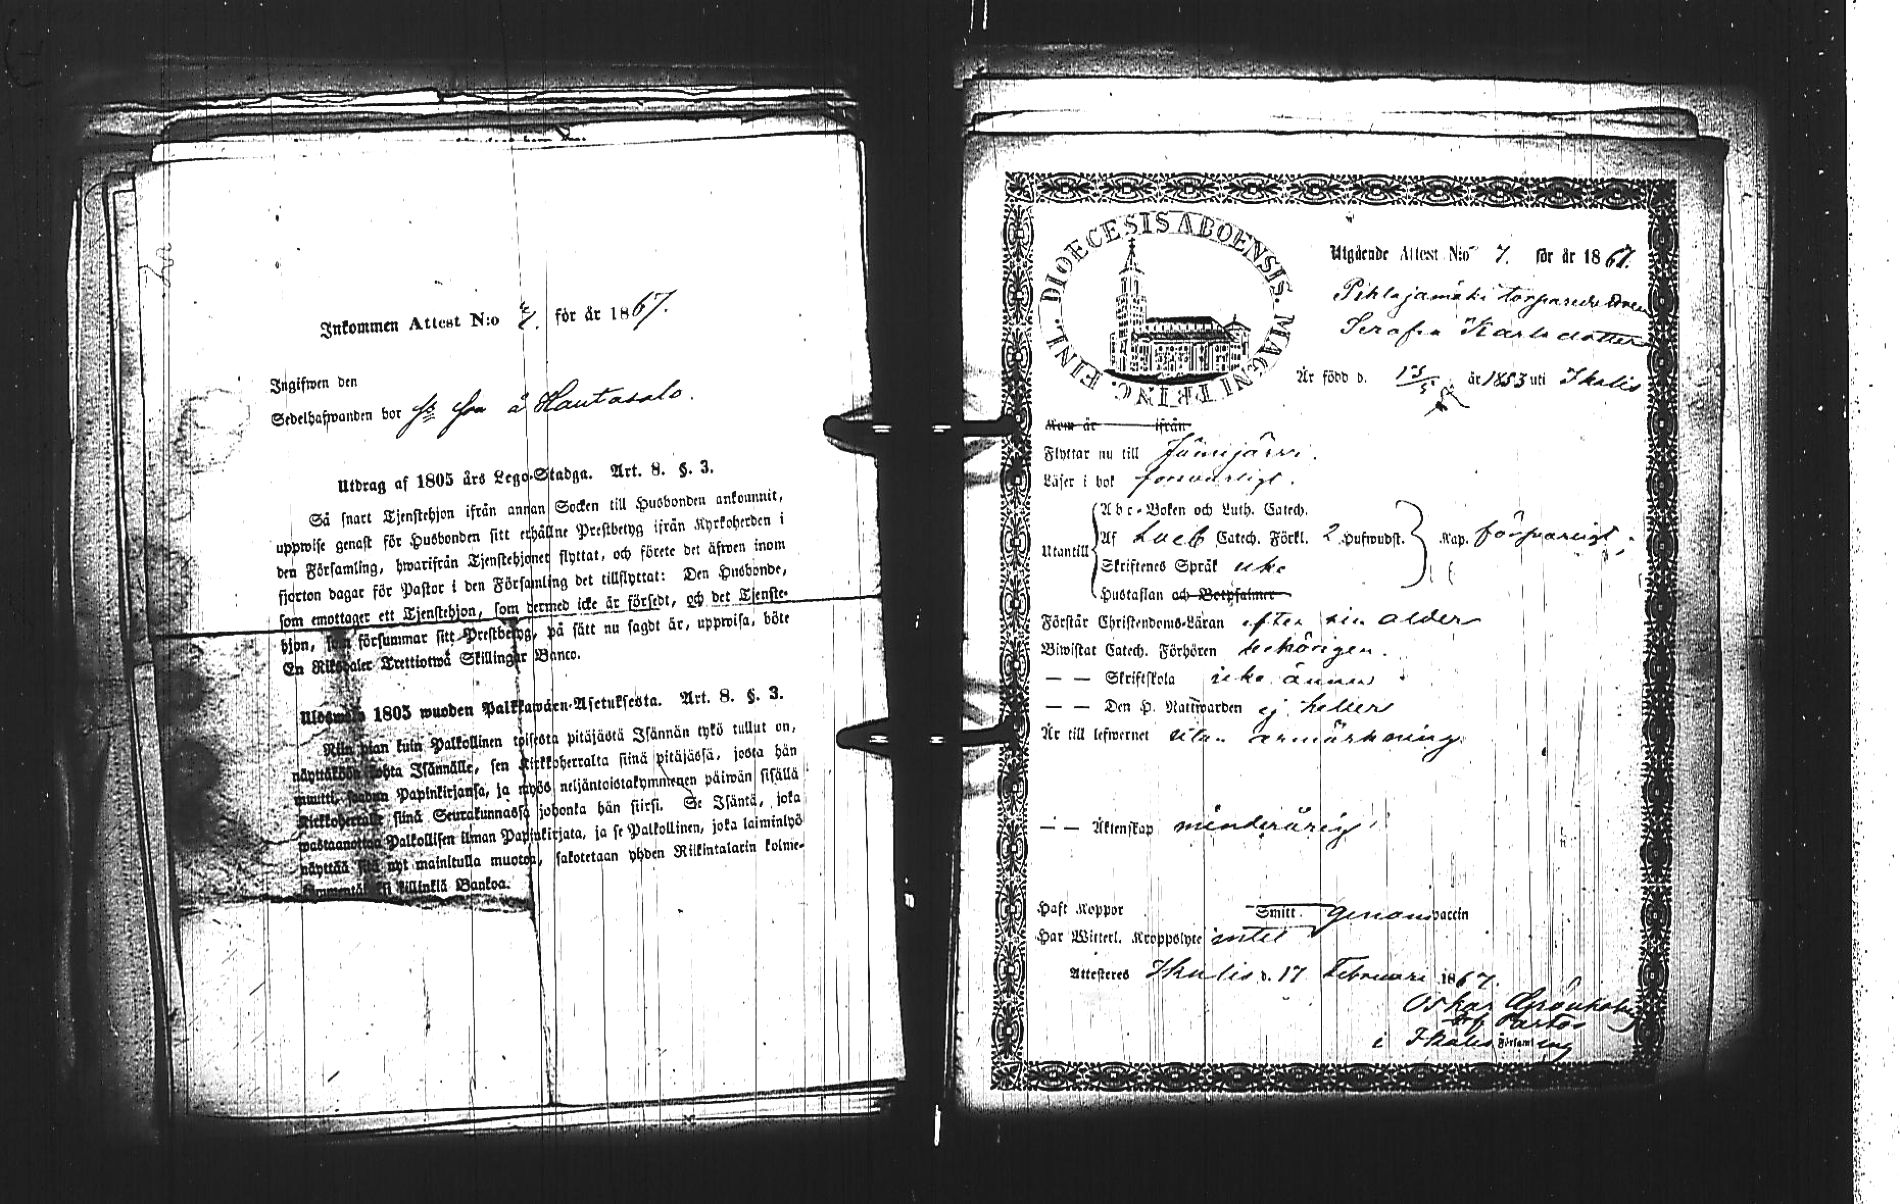 Inkommen Attest N:o 7. för år 1867.
Ingifwen den
Sedelhafwanden bor å Hautasalo.
Utdrag af 1805 års Lego-Stadga. Art. 8. §. 3.
Så snart Tjenstehjon ifrån annan Socken till Husbonden ankommit,
uppwise genast för Husbonden sitt erhållne Prestbetyg ifrån Kyrkoherden i
den Församling, hwarifrån Tjenstehjonet flyttat, och förete det äfwen inom
fjorton dagar för Pastor i den Församling det tillflyttat: Den Husbonde,
som emottager ett Tjenstehjon, som dermed icke är försedt, och det Tjenste-
hjon, som försummar sitt Prestbetyg, på sätt nu sagdt är, uppwisa, böte
En Riksdaler Trettiotwå Skillingar Banco.
Ulosweto 1805 wuoden Palkkawäen-Asetuksesta. Art. 8. §. 3.
Niin pian kuin Palkollinen toisesta pitäjästä Isännän tykö tullut on,
näyttäköön kohta Isännälle, sen Kirkkoherralta siinä pitäjässä, josta hän
muutti, saadun Papinkirjansa, ja myös neljäntoistakymmenen päiwän sisällä
Kirkkoherralle siinä Seurakunnassa johonka hän siirsi. Se Isäntä, joka
wastaanottaa Palkollisen ilman Papinkirjata, ja se Palkollinen, joka laiminlyö
näyttää sitä nyt mainitulla muotoa, sakotetaan yhden Riikintalarin kolme-
killinkiä Bankoa.
FINL. DIOECESIS ABOENSIS. MAGNI PRINC.
Utgående Attest N:o 7. för år 1867.
Pihlajamäki torpare
Serafia Karlsdotter
Är född d. 15/5 år 1853 uti Ikalis
Kom år ifrån
Flyttar nu till Jämijärvi.
Läser i bok försvarligt.
Abc-Boken och Luth. Catech.
Utantill Af Luth Catech. Förkl. 2 Hufwudst. Kap. försvarligt;
Skriftenes Språk icke
Hustaflan och Botpsalmer
Förstår Christendoms-Läran efter sin ålder
Biwistat Catech. Förhören behörigen.
— — Skriftskola icke ännu
— — Den H. Nattwarden ej heller
Är till lefwernet utan anmärkning.
— — Äktenskap minderårig
Haft Koppor Smitt. genom vaccin
Har Witterl. Kroppslyte intet
Attesteres Ikalis d. 17 Februari 1867.
Oskar Grönholm
Pastor
i Ikalis Församling